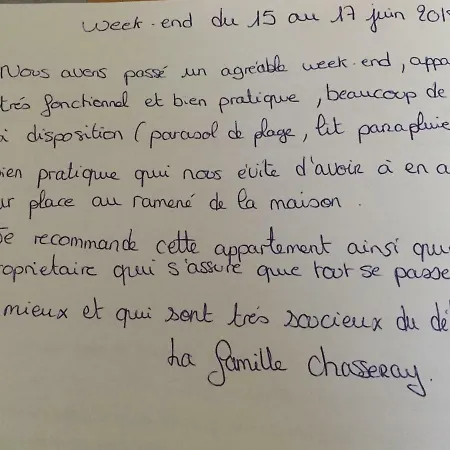 Week-end du 15 au 17 juin 201
Nous avons passé un agréable week-end, appa
très fonctionnel et bien pratique, beaucoup de
à disposition (parasol de plage, lit parapluie
ien pratique qui nous évite d'avoir à en a
ur place au ramené de la maison.
Je recommande cette appartement ainsi que
roprietaire qui s'assure que tout se passe
mieux et qui sont très soucieux du dé
La famille Chasseray.